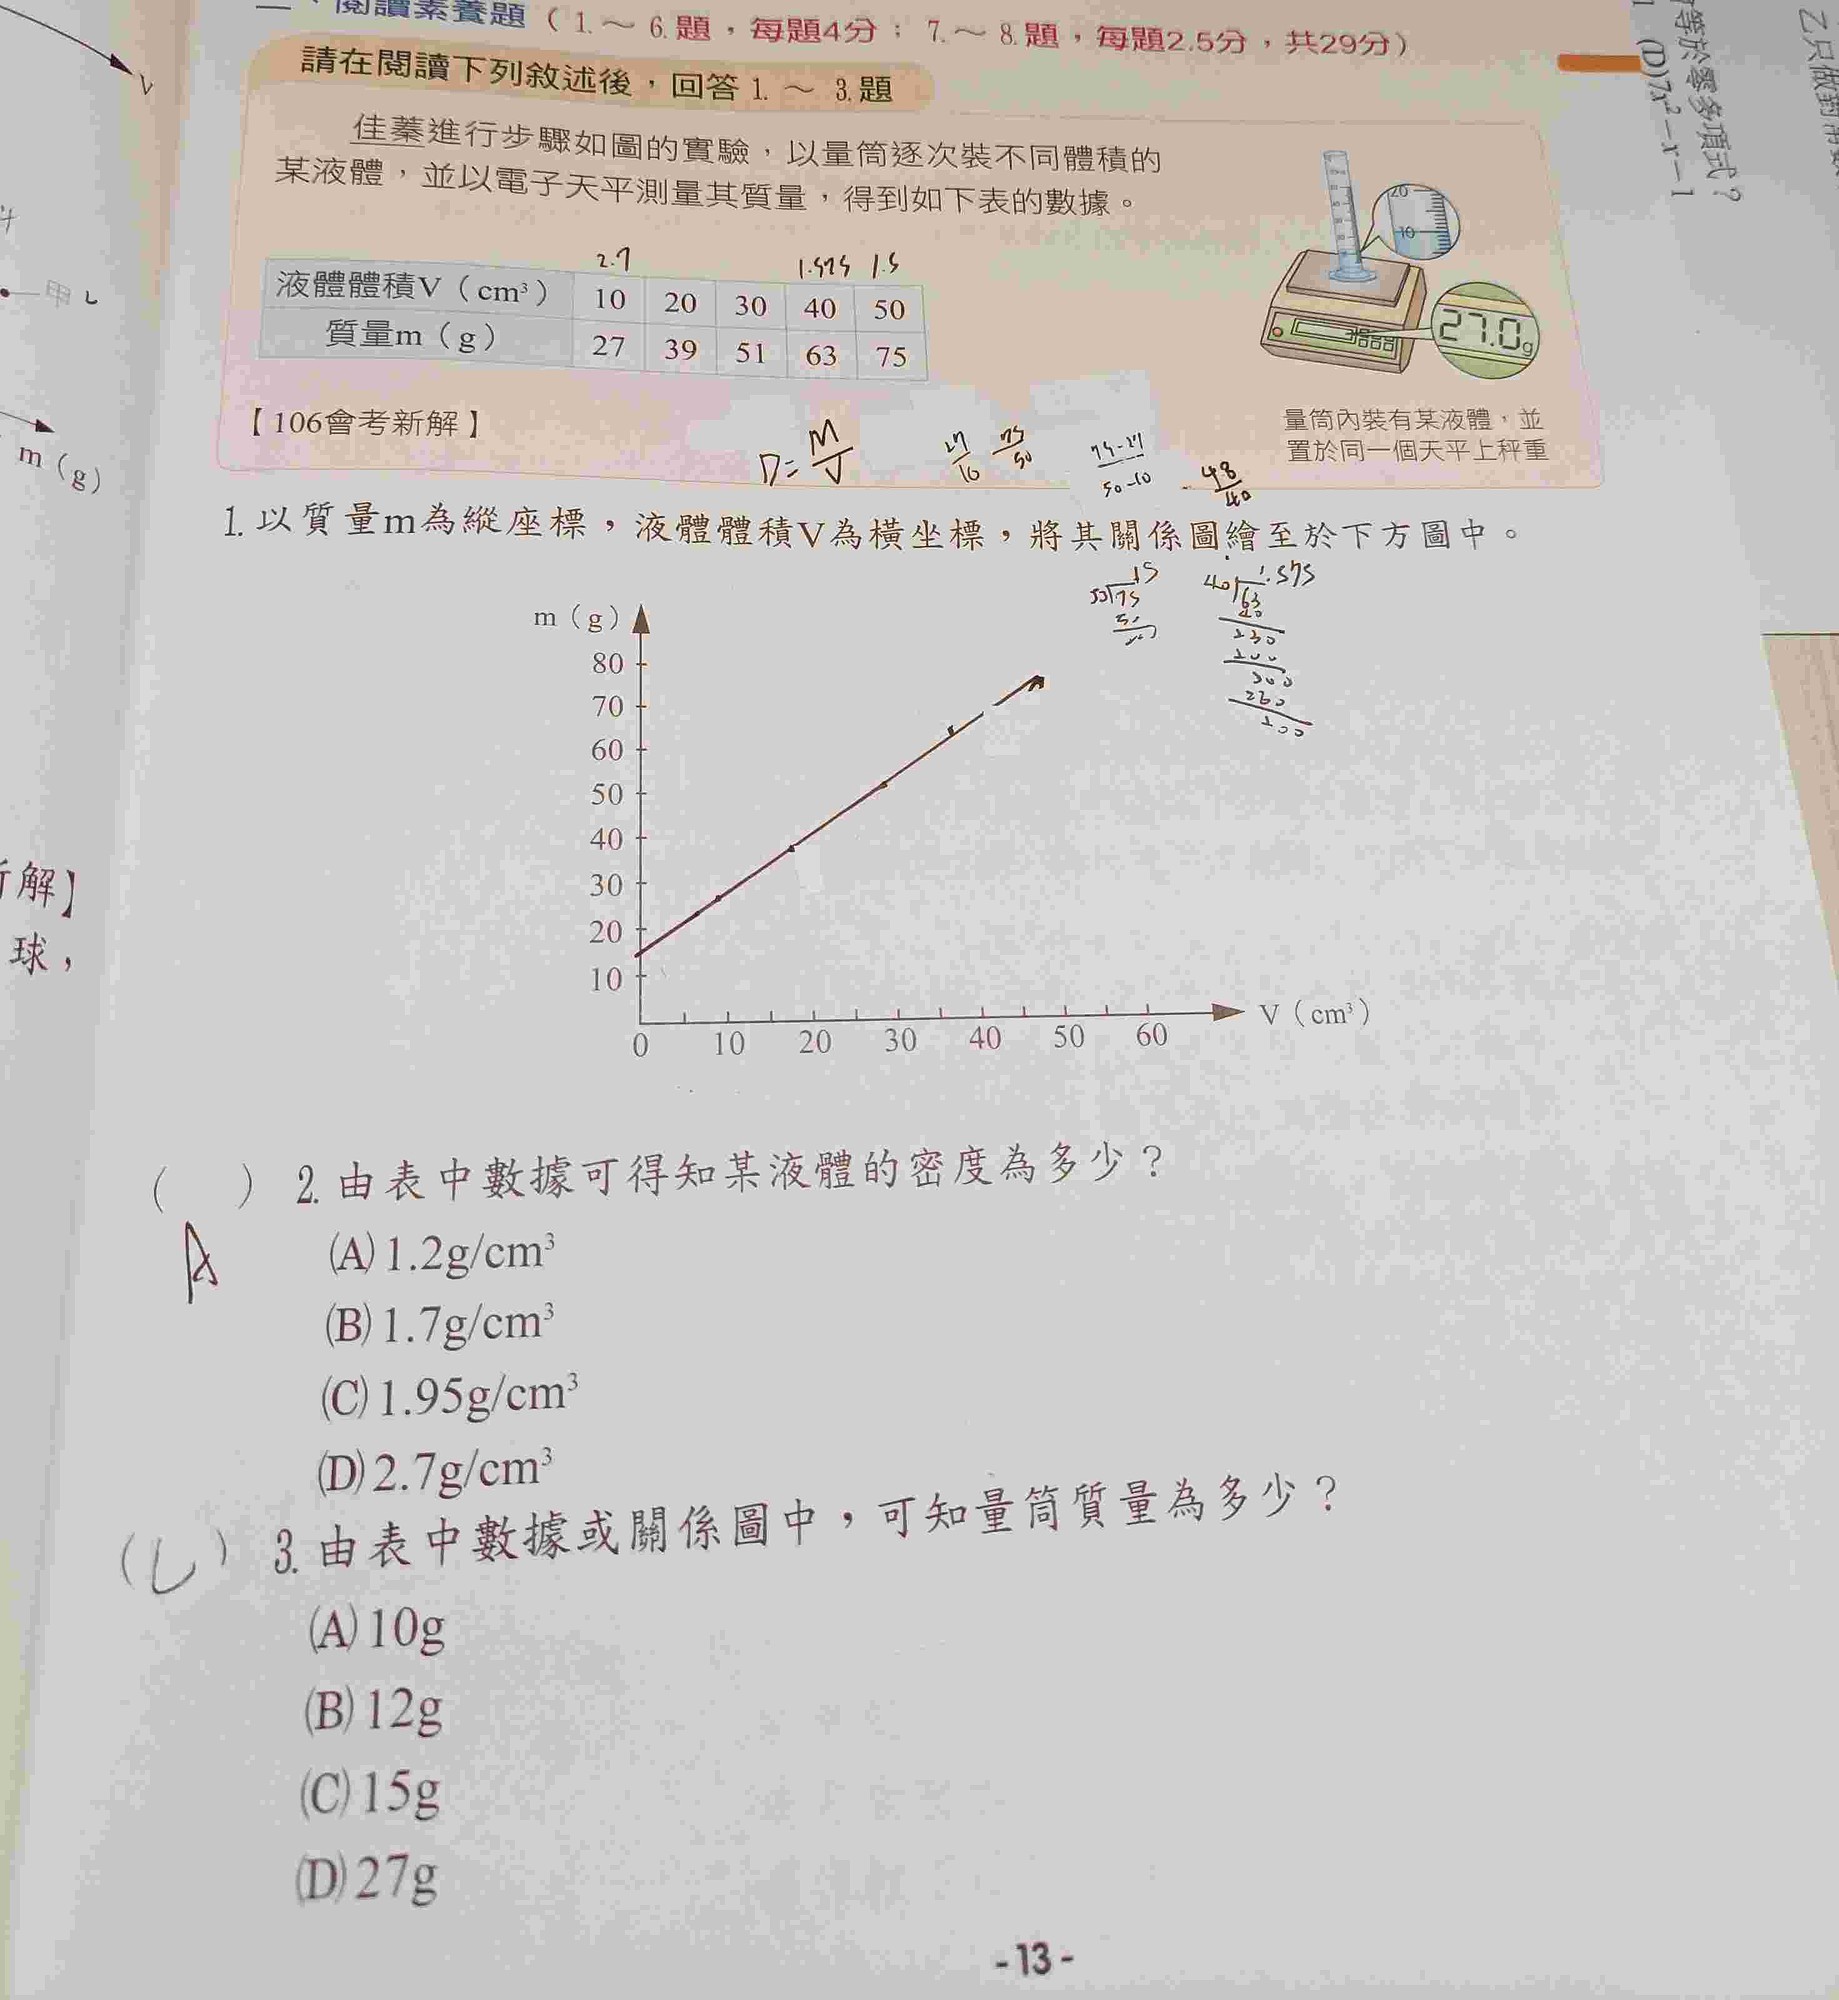 閱讀素養題（1.～6.題，每題4分；7.～8.題，每題2.5分，共29分）
請在閱讀下列敘述後，回答1.～3.題
佳蓁進行步驟如圖的實驗，以量筒逐次裝不同體積的
某液體，並以電子天平測量其質量，得到如下表的數據。
2.7 1.575 1.5
液體體積V（cm³） 10 20 30 40 50
質量m（g） 27 39 51 63 75
20
10
27.0g
【106會考新解】
量筒內裝有某液體，並
置於同一個天平上秤重
D=M/V 27/10 75/50 75-27/50-10 48/40
1.以質量m為縱座標，液體體積V為橫坐標，將其關係圖繪至於下方圖中。
m（g）
80
70
60
50
40
30
20
10
0 10 20 30 40 50 60 V（cm³）
（ ）2.由表中數據可得知某液體的密度為多少？
A
(A)1.2g/cm³
(B)1.7g/cm³
(C)1.95g/cm³
(D)2.7g/cm³
（ ）3.由表中數據或關係圖中，可知量筒質量為多少？
(A)10g
(B)12g
(C)15g
(D)27g
-13-
V
甲
m（g）
解】
球，
等於零多項式？
(D)7x²－x－1
乙只做對